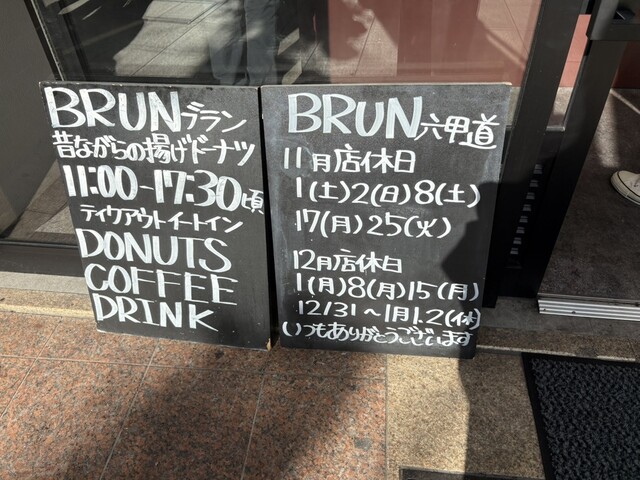 BRUNブラン
昔ながらの揚げドーナツ
11:00-17:30頃
ティクアウトイートイン
DONUTS
COFFEE
DRINK
BRUN六甲道
11月店休日
1(土)2(日)8(土)
17(月)25(火)
12月店休日
1(月)8(月)15(月)
12/31～1月1.2(休)
いつもありがとうございます